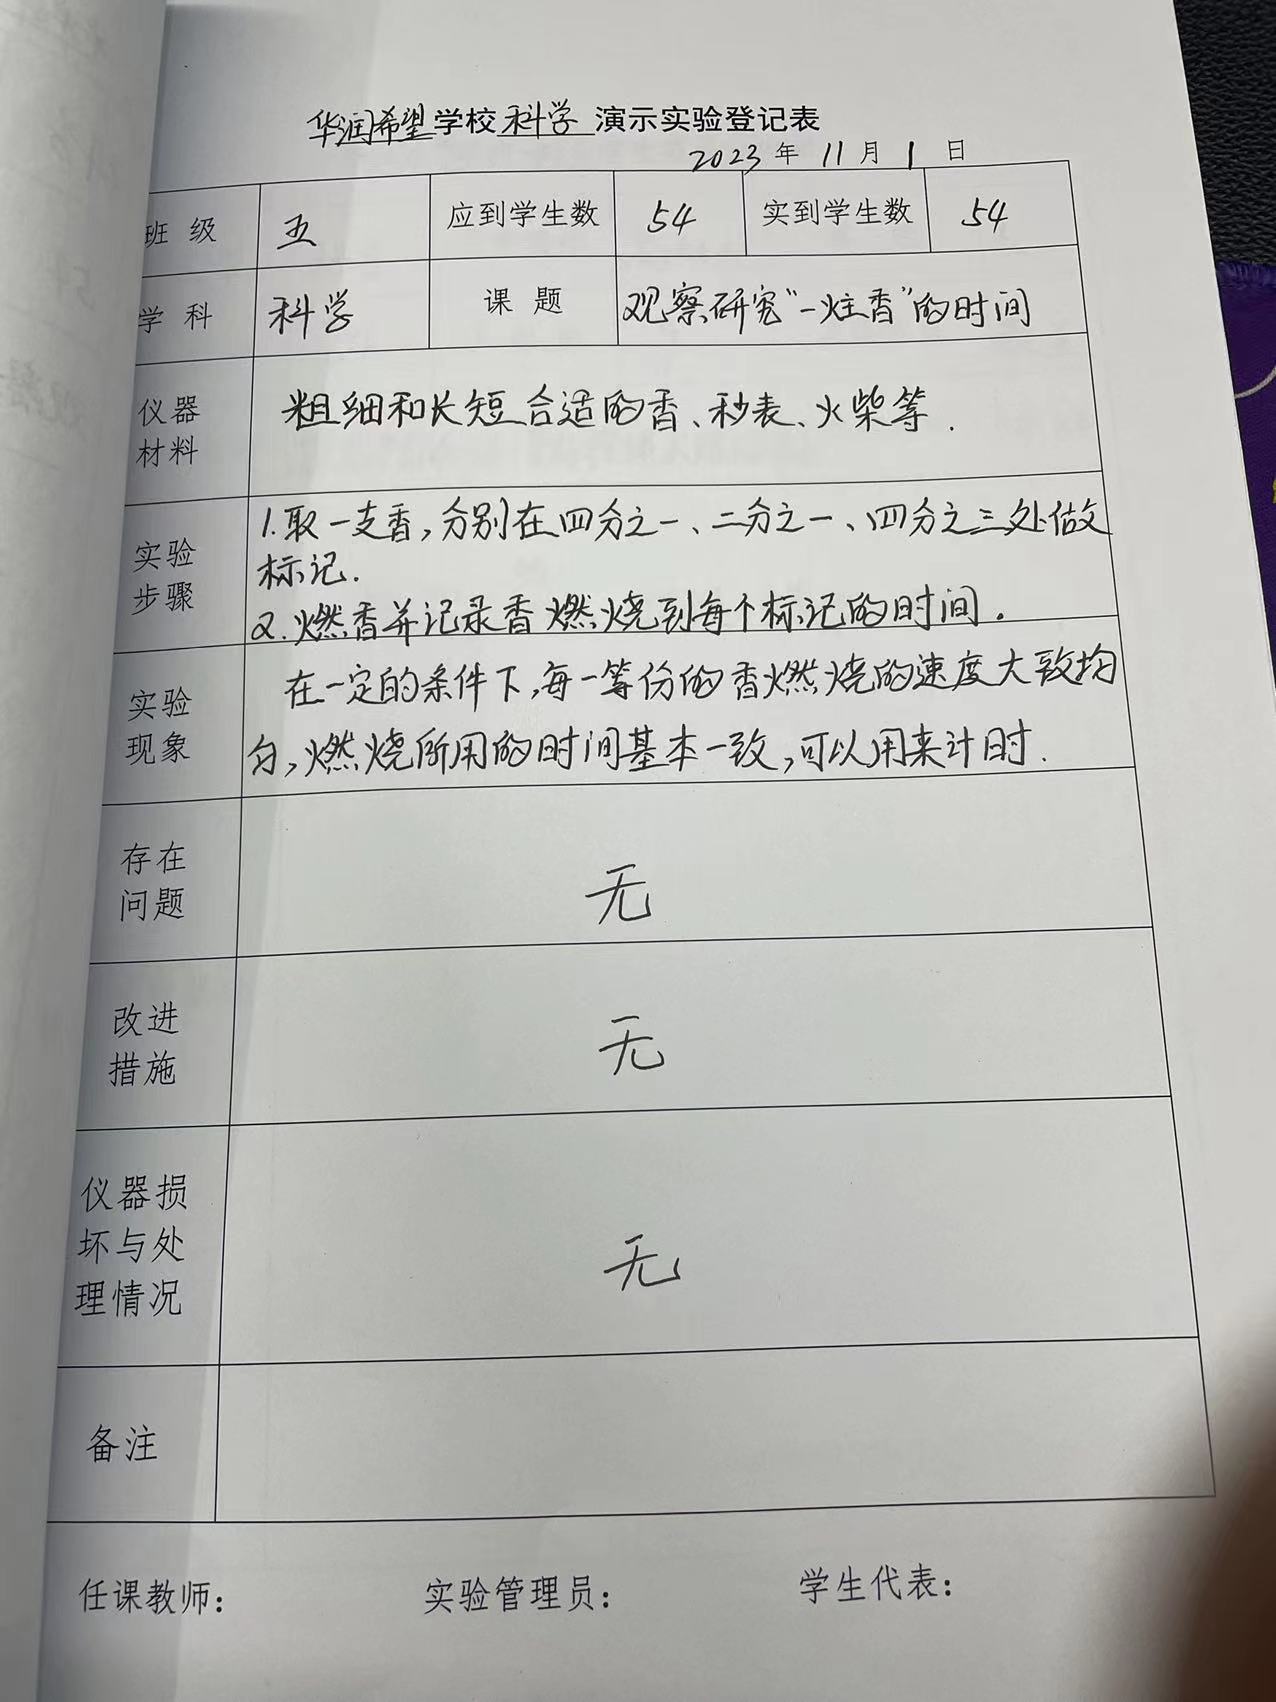 华润希望学校科学 演示实验登记表
2023年 11月 1日
班 级 五 应到学生数 54 实到学生数 54
学 科 科学 课 题 观察研究“一炷香”的时间
仪器
材料
粗细和长短合适的香、秒表、火柴等.
实验
步骤
1.取一支香,分别在四分之一、二分之一、四分之三处做
标记.
2.燃香并记录香燃烧到每个标记的时间.
实验
现象
在一定的条件下,每一等份的香燃烧的速度大致均
匀,燃烧所用的时间基本一致,可以用来计时.
存在
问题
无
改进
措施
无
仪器损
坏与处
理情况
无
备注
任课教师: 实验管理员: 学生代表: